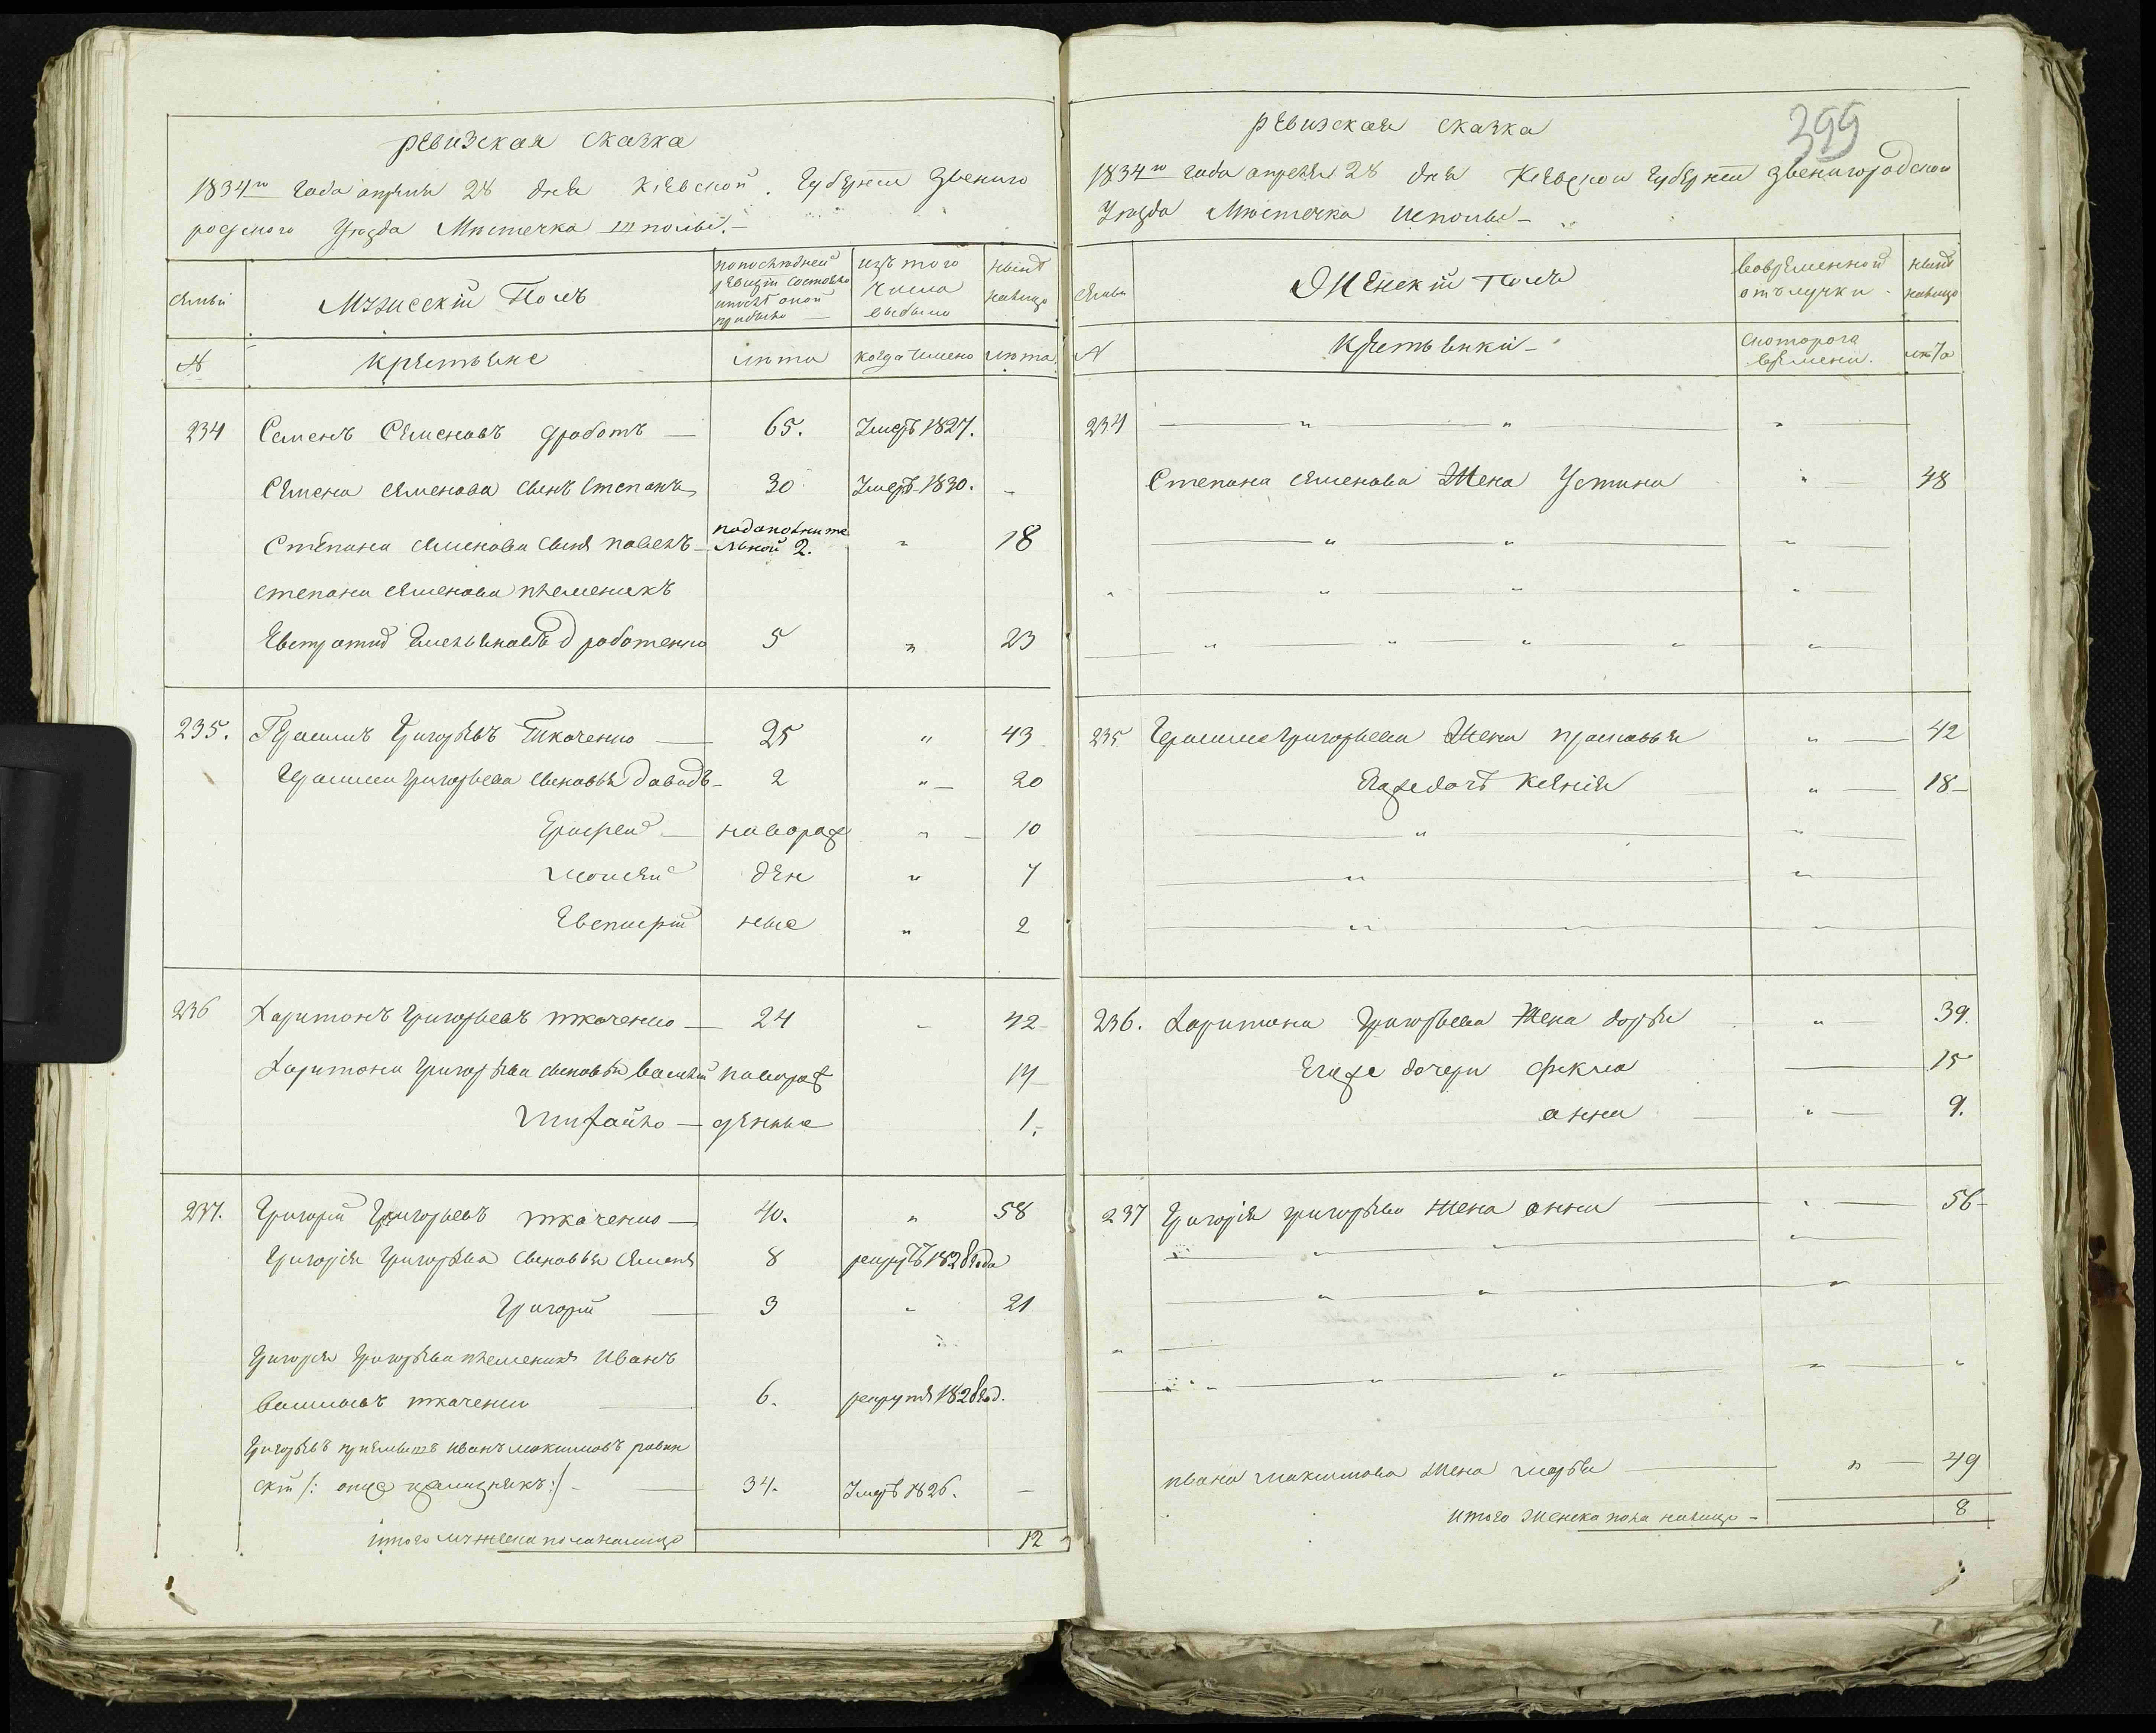 ревизская сказка
1834го года апреля 28 дня Кіевской Губерніи Звениго
родского Уезда Мястечка
Семьи
Мужескій Полъ
По последней ревизіи состояло и после оной прибыло
Изъ того числа выбыло
Ныне налицо
№
Крестьяне
лета
когда имено
лета
234 Семенъ Семеновъ Дработъ 65. Умеръ 1827.
Семена Семенова сынъ Степанъ 30 Умеръ 1830.
Степана Семенова сынъ Павелъ по дополните
льной 2. " 18
Степана Семенова племеникъ
Евстратий Емельяновъ Дработенко 5 " 23
235. Герасимъ Григорьевъ Ткаченко 25 " 43
Герасима Григорьева сыновья Давидъ 2 " 20
новорож " 10
Моисей ден " 7
ные " 2
236 Харитонъ Григорьевъ Ткаченко 24 " 42
Харитона Григорьева сыновья Василій новорож 14
Михайло денные 1.
237. Григорій Григорьевъ Ткаченко 40. " 58
Григорія Григорьева сыновья Семенъ 8 рекрутъ 1828 года
Григорій 3 " 21
Григорія Григорьева племеникъ Иванъ
Ткаченко 6. рекрутъ 1828 год.
Григорьевъ Иванъ Максимовъ
скій 34. Умеръ 1826.
Итого мужеска пола налицо 12
299
ревизская сказка
1834го года апреля 28 дня Кіевской Губерніи Звенигородской
Уезда Мястечка
Семьи
Женскій Полъ
Во временной отлучки
Ныне налицо
№
Крестьянки
С которого времени.
лета
234 " " "
Степана Семенова Жена Устина " 48
" " "
" " "
" " " " "
235 Герасима Григорьева Жена Прасковья " 42
Егоже дочь Ксенія " 18
" "
" "
" " "
236. Харитона Григорьева Жена Дарья " 39.
Егоже дочери Фекла 15
Анна " 9.
237 Григорія Григорьева жена Анна " 56
" " "
" " "
" " " "
Ивана Максимова жена Марья " 49
Итого женска пола налицо 8